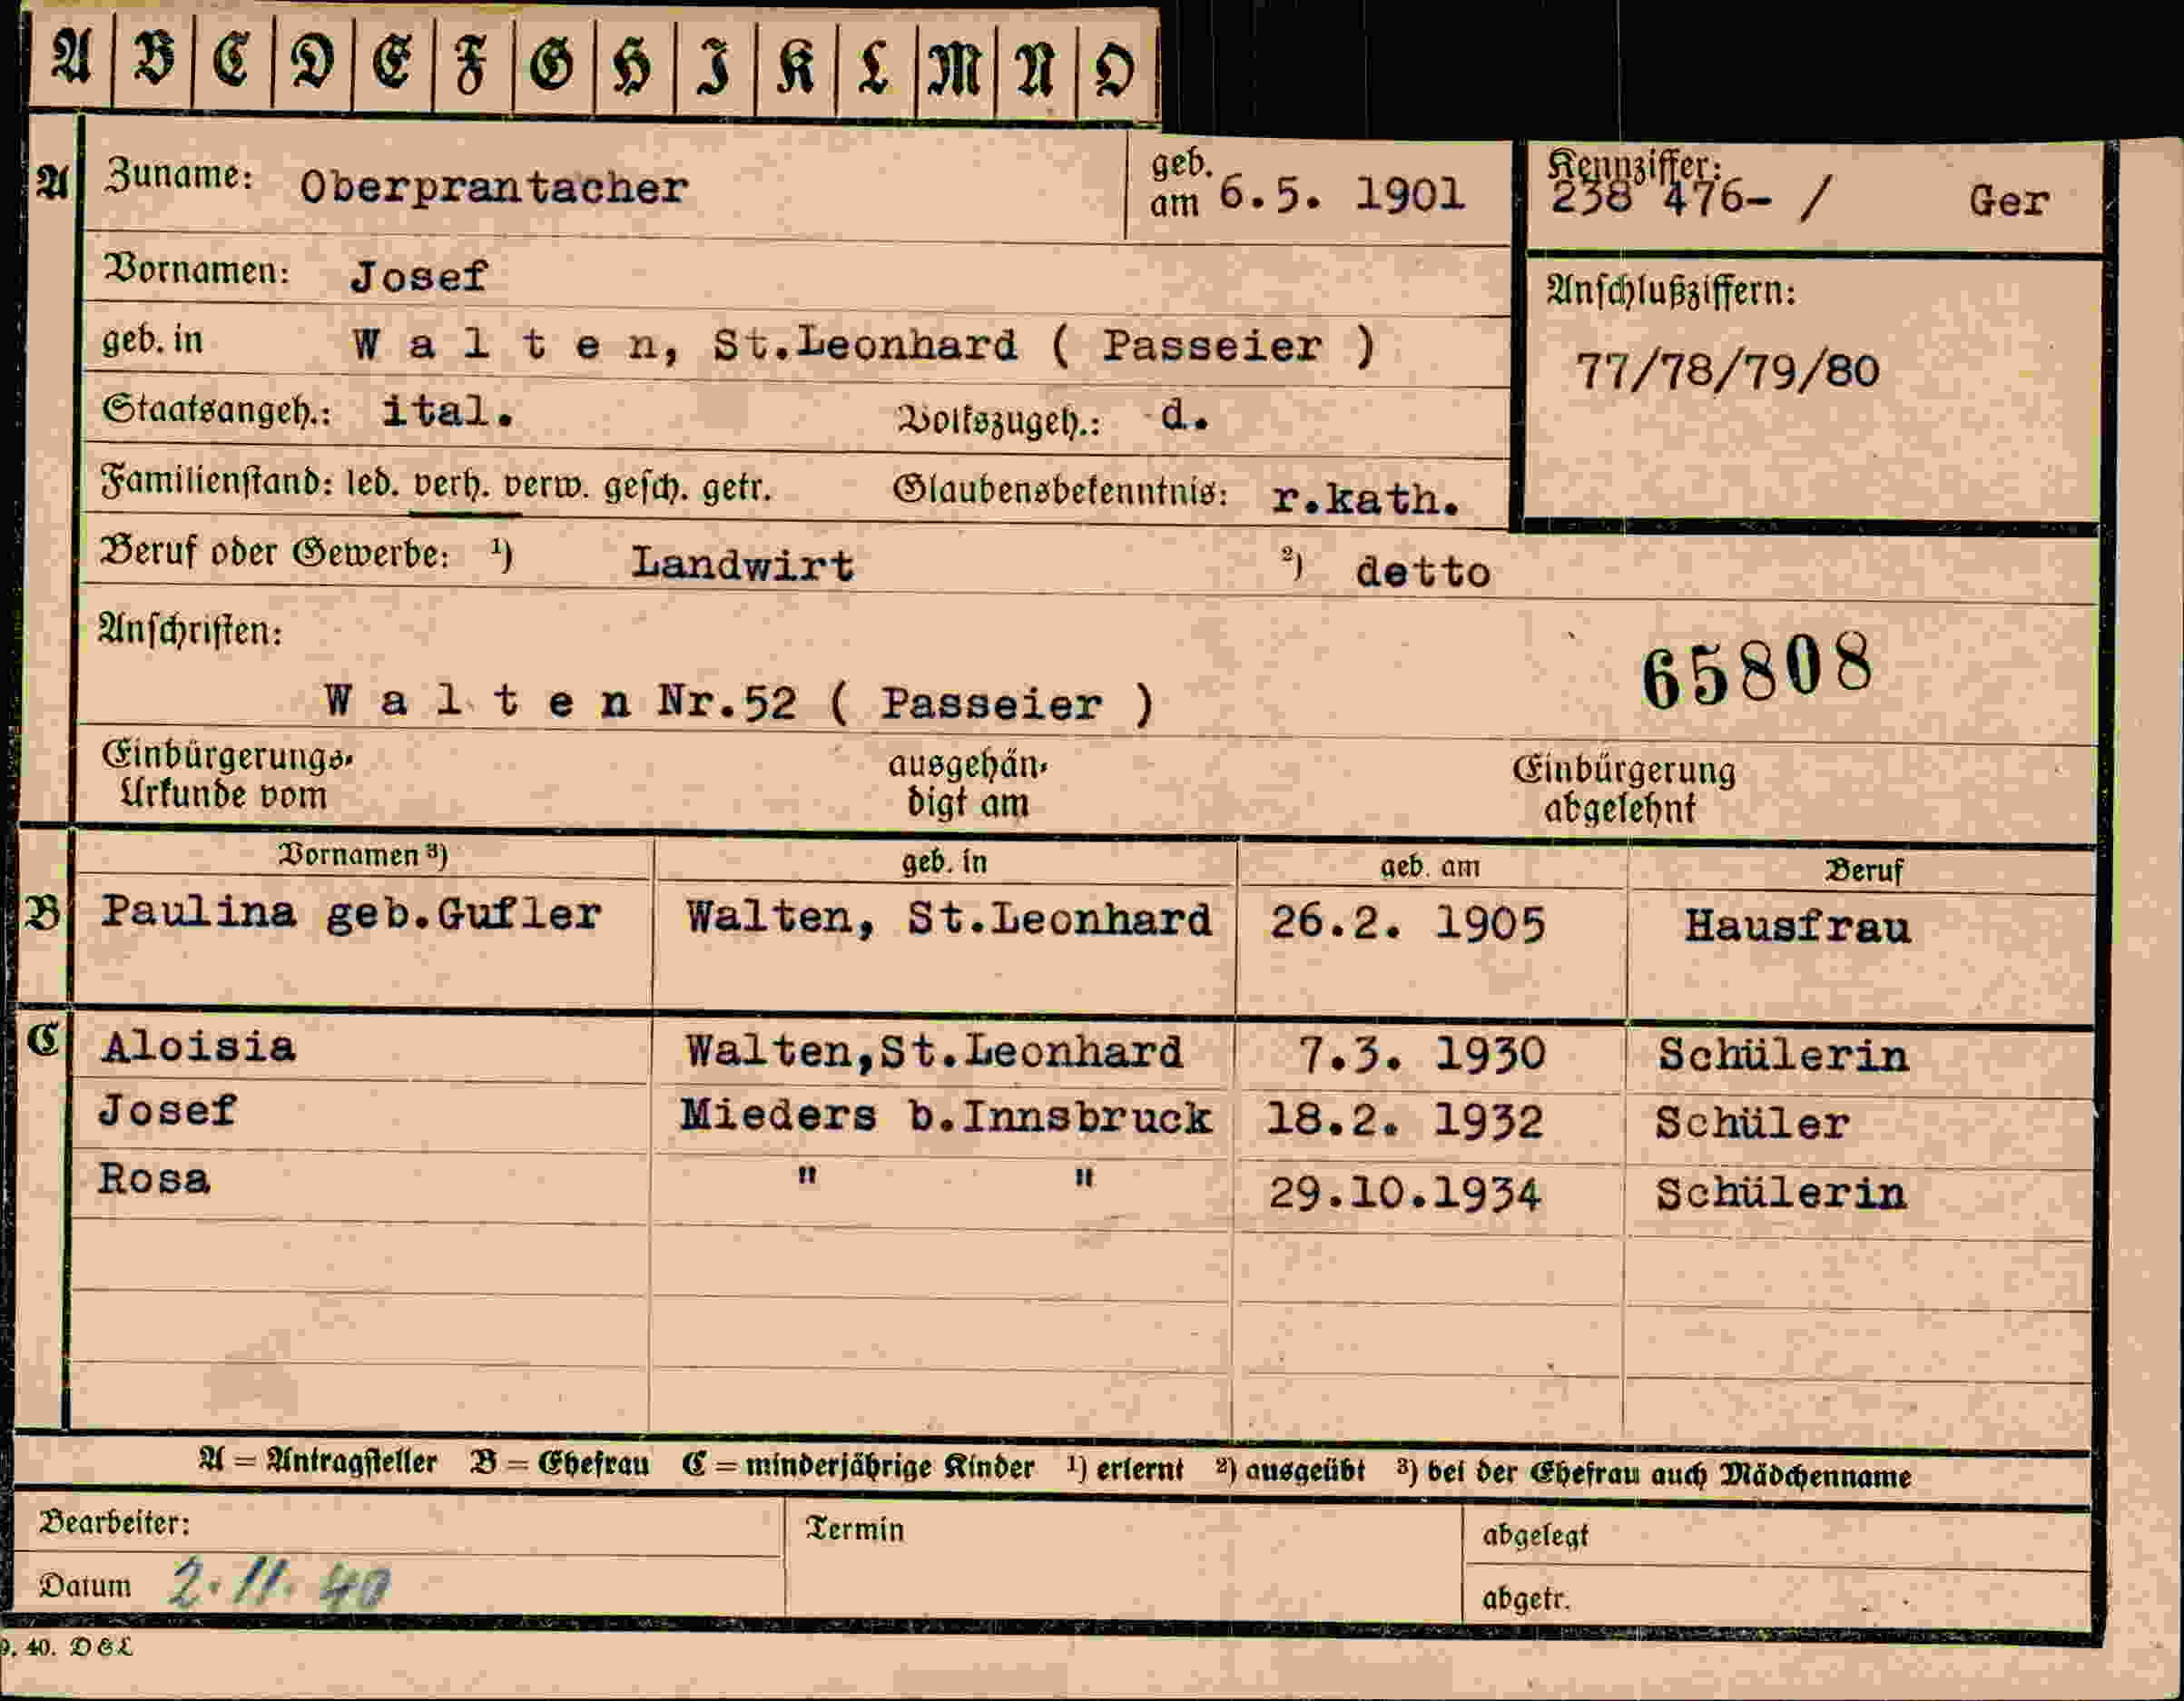 A B C D E F G H I K L M N O
A Zuname: Oberprantacher geb. am 6.5. 1901 Kennziffer: 238 476- / Ger
Vornamen: Josef
Anschlußziffern:
geb. in W a l t e n, St.Leonhard ( Passeier )
77/78/79/80
Staatsangeh.: ital. Volkszugeh.: d.
Familienstand: led. verh. verw. gesch. getr. Glaubensbekenntnis: r.kath.
Beruf oder Gewerbe: ¹) Landwirt ²) detto
Anschriften:
65808
W a l t e n Nr.52 ( Passeier )
Einbürgerungs- ausgehän- Einbürgerung
Urkunde vom digt am abgelehnt
Vornamen ³) geb. in geb. am Beruf
B Paulina geb.Gufler Walten, St.Leonhard 26.2. 1905 Hausfrau
C Aloisia Walten,St.Leonhard 7.3. 1930 Schülerin
Josef Mieders b.Innsbruck 18.2. 1932 Schüler
Rosa " " 29.10.1934 Schülerin
A = Antragsteller B = Ehefrau C = minderjährige Kinder ¹) erlernt ²) ausgeübt ³) bei der Ehefrau auch Mädchenname
Bearbeiter: Termin abgelegt
Datum 2.11.40 abgetr.
9. 40. DEL